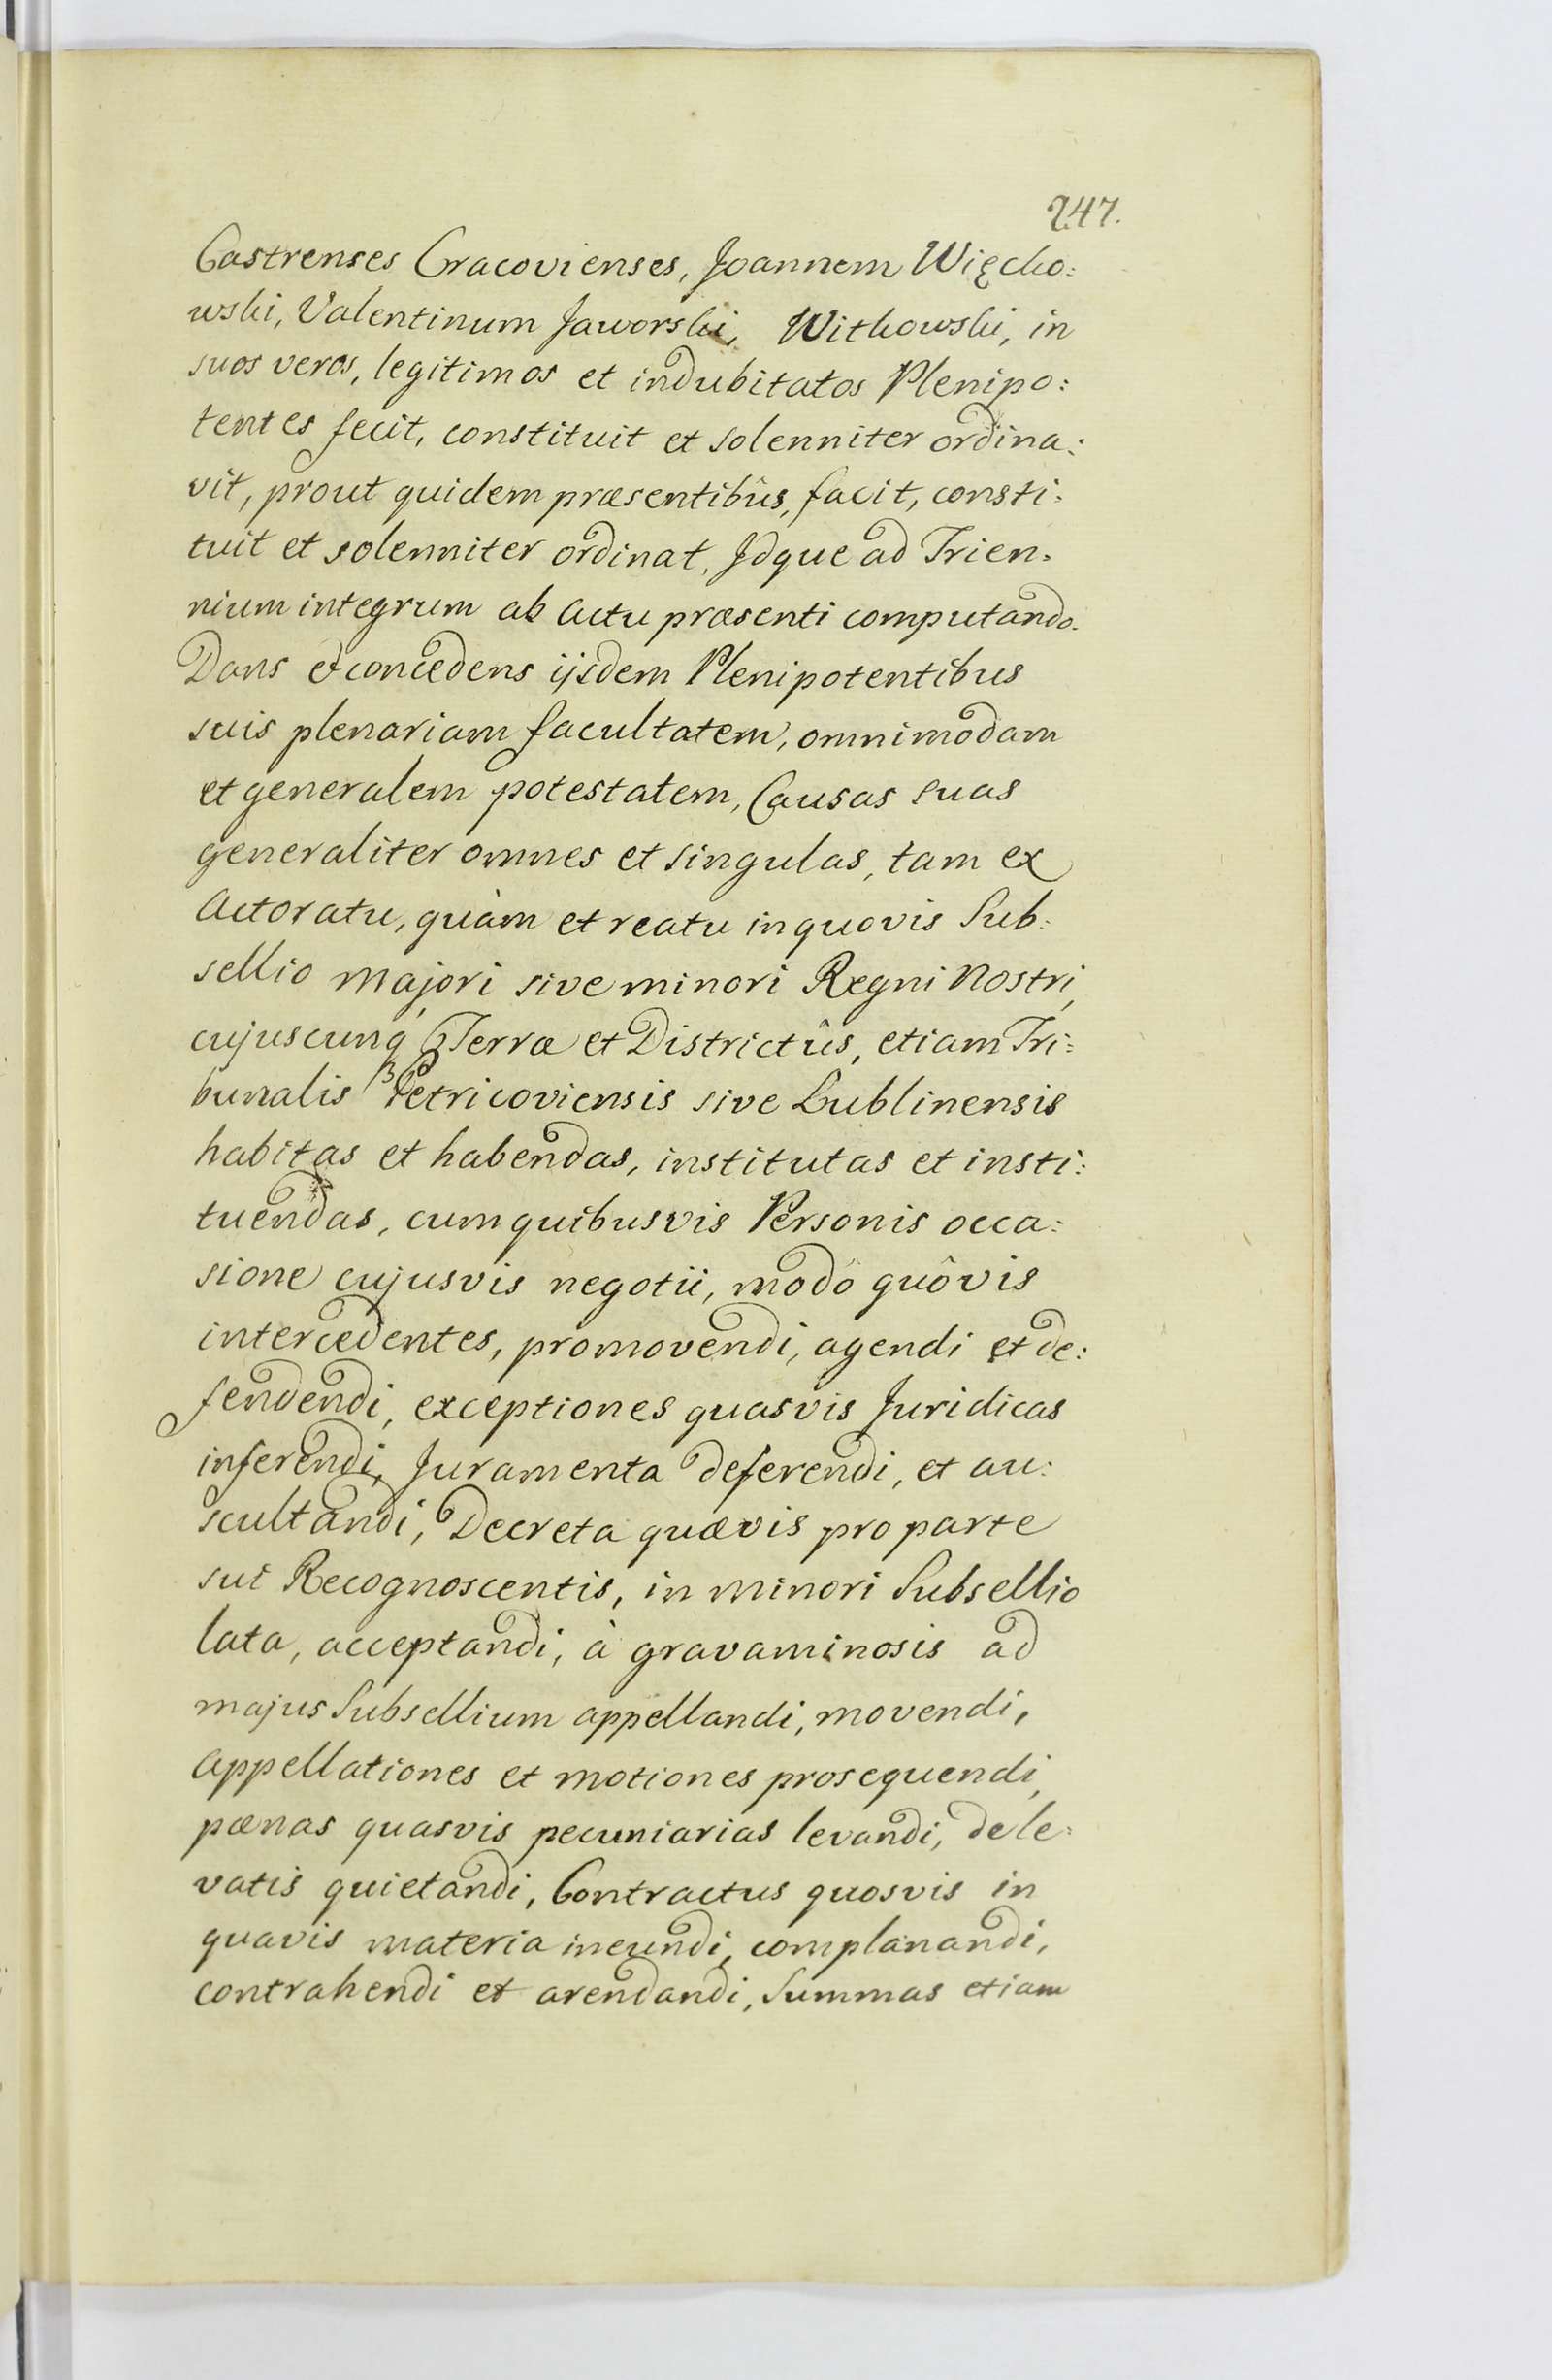 247.
Castrenses Cracovienses, Joannem Więcko:
wski, Valentinum Jaworski, Witkowski, in
suos veros, legitimos et indubitatos Plenipo:
tentes fecit, constituit et solenniter ordina:
vit, prout quidem præsentibûs, facit, consti:
tuit et solenniter ordinat, Jdque ad Trien:
nium integrum ab Actu præsenti computando.
Dans et concedens ijsdem Plenipotentibus
suis plenariam facultatem, omnimodam
et generalem potestatem, Causas suas
generaliter omnes et singulas, tam ex
Actoratu, quàm et reatu in quovis Sub:
sellio Majori sive minori Regni Nostri,
cujuscunq, Terræ et Districtûs, etiam Tri:
bunalis Petricoviensis sive Lublinensis
habitas et habendas, institutas et insti:
tuendas, cum quibusvis Personis occa:
sione cujusvis negotii, modô quôvis
intercedentes, promovendi, agendi et de:
fendendi, exceptiones quasvis Juridicas
inferendi, Juramenta deferendi, et au:
scultandi, Decreta quævis pro parte
sui Recognoscentis, in minori Subsellio
lata, acceptandi, à gravaminosis ad
majus Subsellium appellandi, movendi,
Appellationes et motiones prosequendi,
pœnas quasvis pecuniarias levandi, de le:
vatis quietandi, Contractus quosvis in
quavis materia ineundi, complanandi,
contrahendi et arendandi, Summas etiam